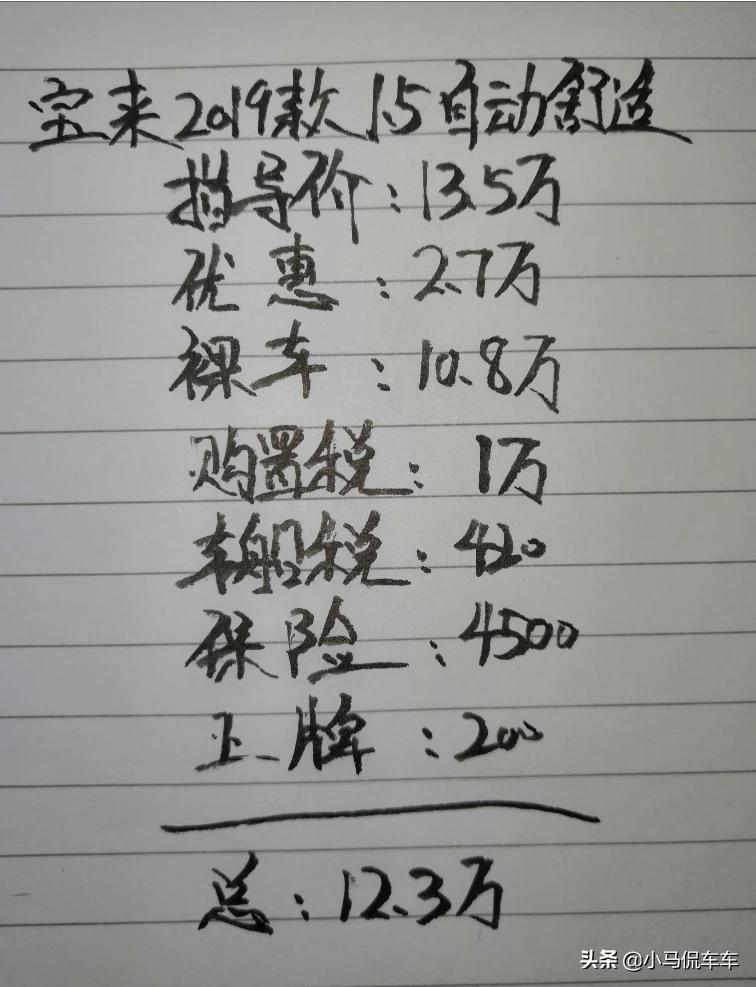 宝来2019款1.5自动舒适
指导价:13.5万
优惠:2.7万
裸车:10.8万
购置税:1万
车船税:420
保险:4500
上牌:200
总:12.3万
头条 @小马侃车车